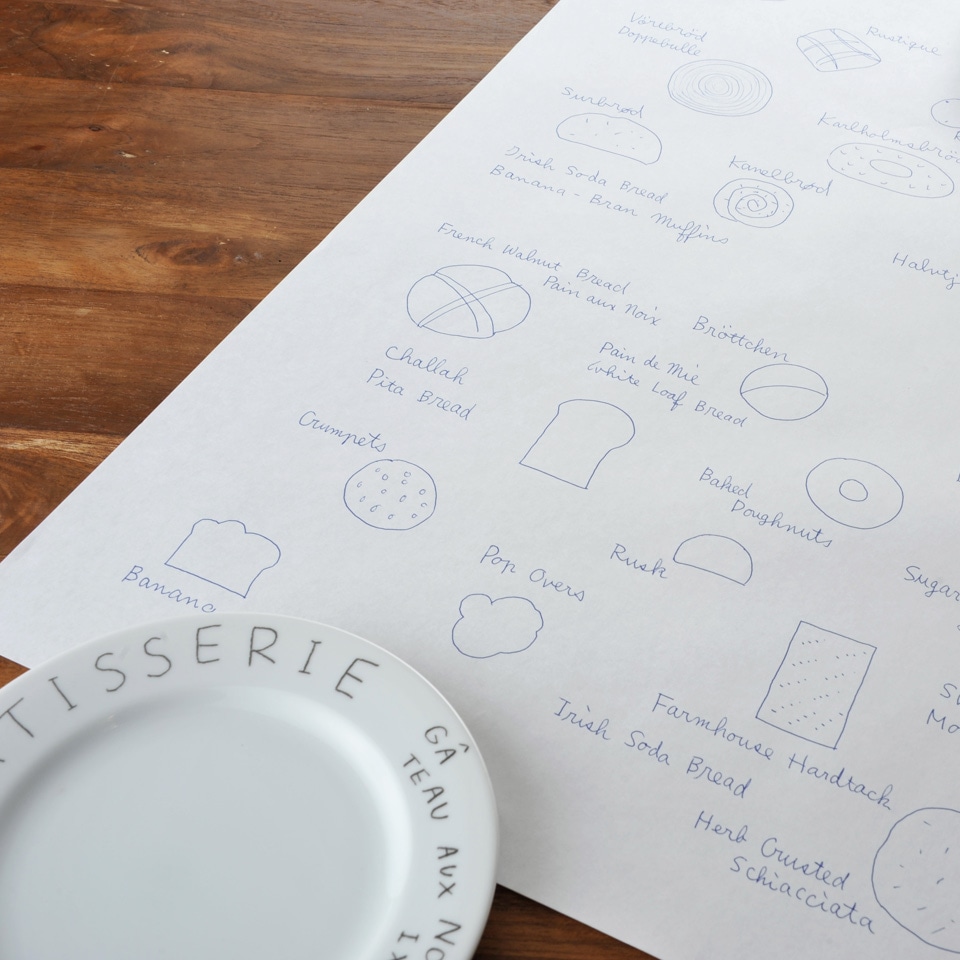 Vörtbröd
Doppabulle
Rustique
Surbrød
Karlholmsbröd
Irish Soda Bread
Banana-Bran Muffins
Kanelbrød
French Walnut Bread
Pain aux Noix
Halvtj
Bröttchen
Pain de Mie
White Loaf Bread
Challah
Pita Bread
Crumpets
Baked
Doughnuts
Rusk
Pop Overs
Banana
Sugar
Farmhouse Hardtack
Irish Soda Bread
Mo
Herb Crusted
Schiacciata
TISSERIE
GÂ
TEAU AUX NO
IX